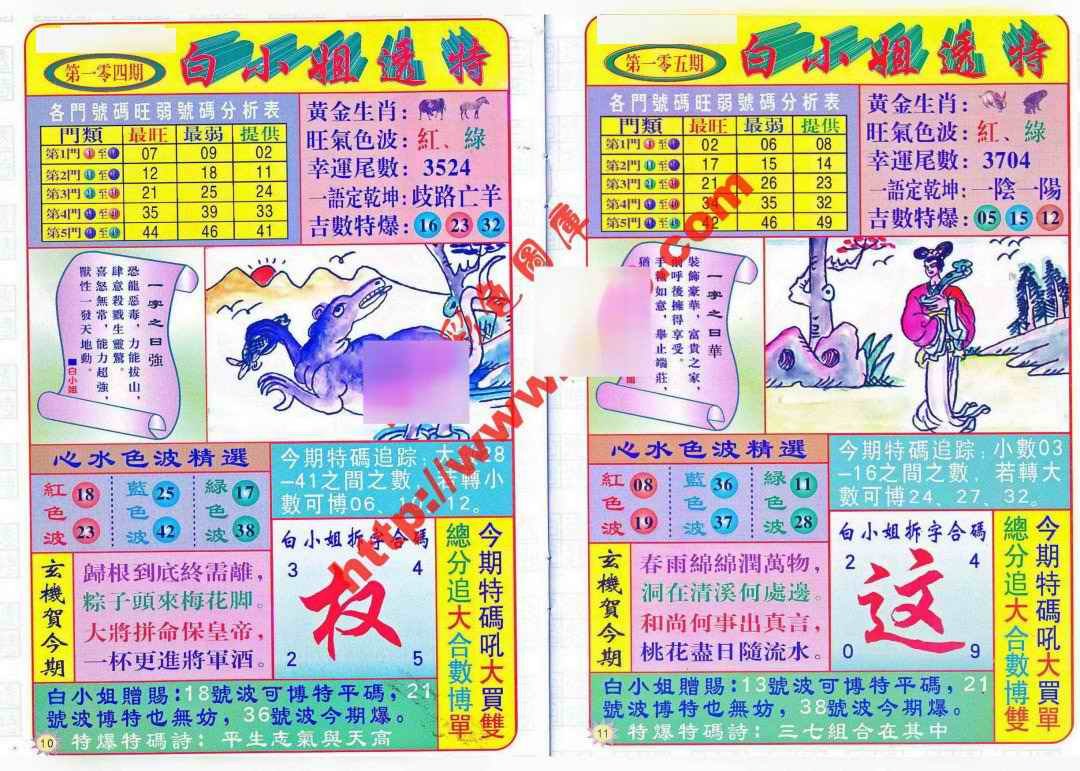 第一零四期
白小姐透特
各門號碼旺弱號碼分析表
門類 最旺 最弱 提供
第1門 至 07 09 02
第2門 至 12 18 11
第3門 至 21 25 24
第4門 至 35 39 33
第5門 至 44 46 41
黃金生肖:
旺氣色波: 紅、綠
幸運尾數: 3524
一語定乾坤: 歧路亡羊
吉數特爆: 16 23 32
一字之曰強
恐龍惡毒,力能拔山,
肆意殺戮生靈驚。
喜怒無常,能力超強,
獸性一發天地動。
■白小姐
心水色波精選
紅色波 18 23
藍色波 25 42
綠色波 17 38
今期特碼追踪:大 28
-41之間之數,若轉小
數可博06、1 12。
玄機賀今期
歸根到底終需離,
粽子頭來梅花脚。
大將拼命保皇帝,
一杯更進將軍酒。
白小姐拆字合碼
3 4
枝
2 5
今期特碼吼大買雙
總分追大合數博單
白小姐贈賜:18號波可博特平碼,21
號波博特也無妨,36號波今期爆。
特爆特碼詩: 平生志氣與天高
10
第一零五期
白小姐透特
各門號碼旺弱號碼分析表
門類 最旺 最弱 提供
第1門 至 02 06 08
第2門 至 17 15 14
第3門 至 21 26 23
第4門 至 34 35 32
第5門 至 42 46 49
黃金生肖:
旺氣色波: 紅、綠
幸運尾數: 3704
一語定乾坤: 一陰一陽
吉數特爆: 05 15 12
一字之曰華
裝飾豪華,富貴之家,
前呼後擁得享受。
手執如意,舉止端莊,
猶
心水色波精選
紅色波 08 19
藍色波 36 37
綠色波 11 28
今期特碼追踪:小數03
-16之間之數,若轉大
數可博24、27、32。
玄機賀今期
春雨綿綿潤萬物,
洞在清溪何處邊。
和尚何事出真言,
桃花盡日隨流水。
白小姐拆字合碼
2 4
這
0 9
今期特碼吼大買單
總分追大合數博雙
白小姐贈賜:13號波可博特平碼,21
號波博特也無妨,38號波今期爆。
特爆特碼詩: 三七組合在其中
11
http://www. .com